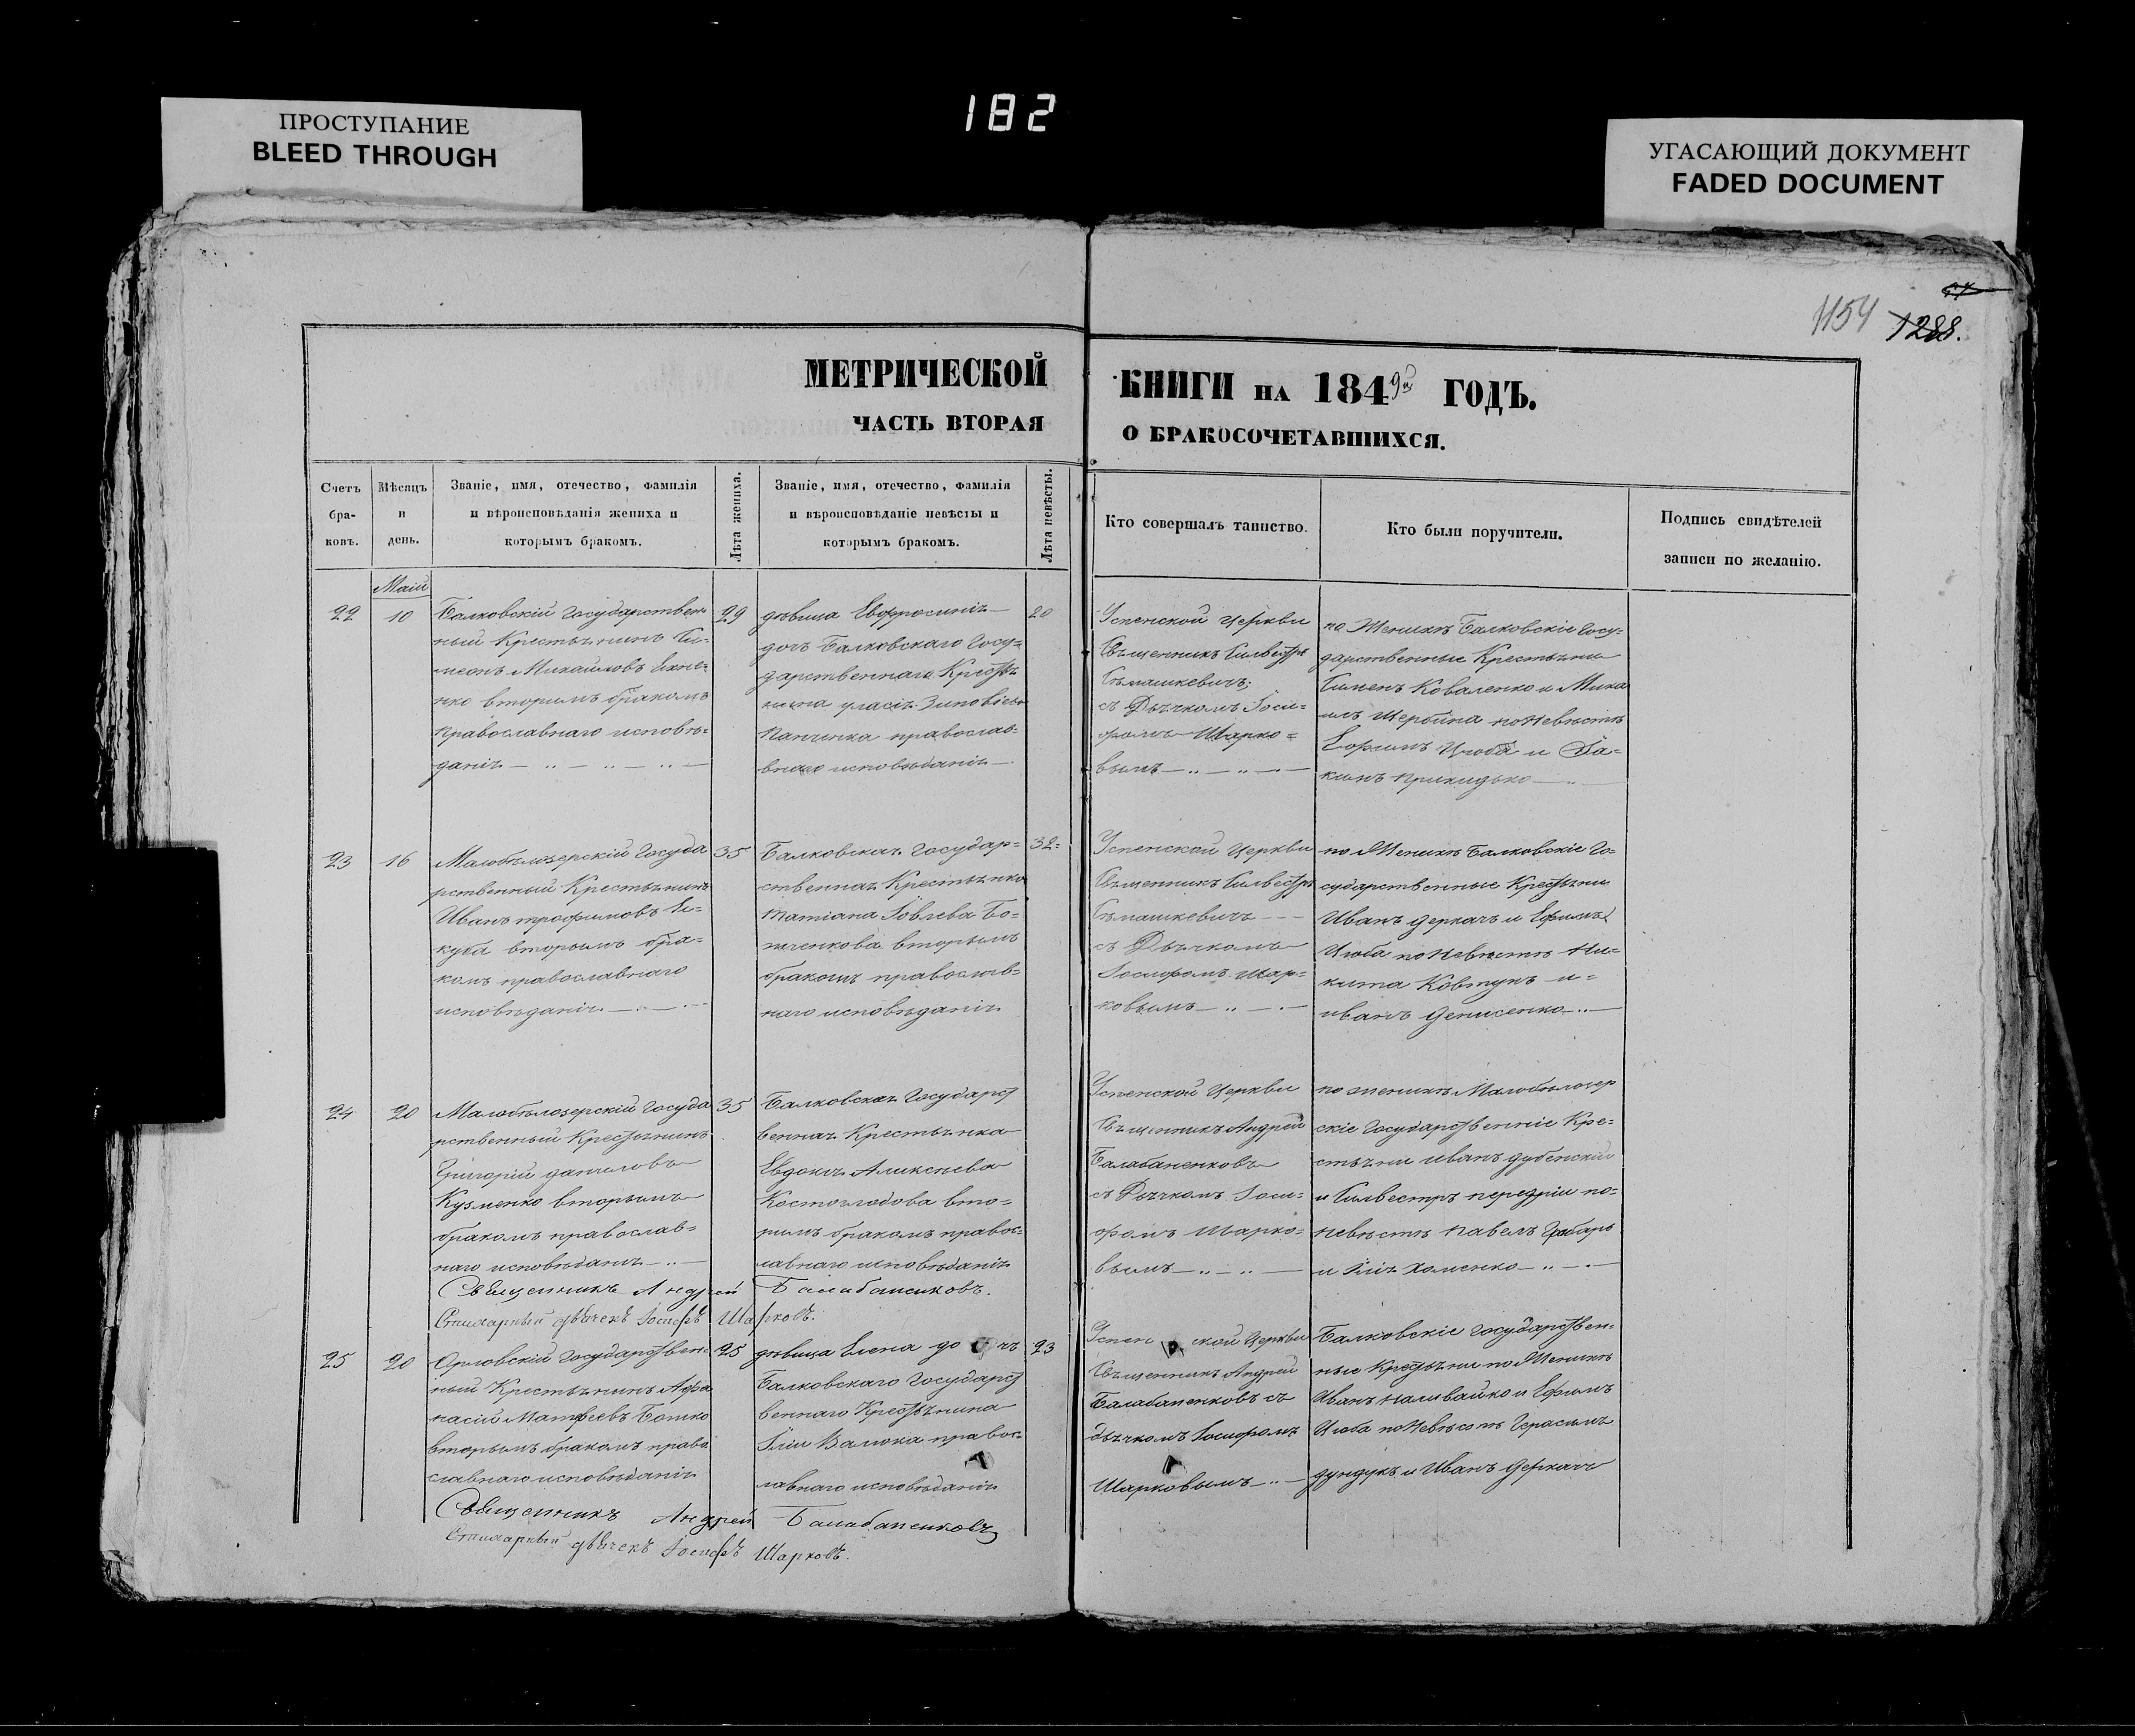 182
ПРОСТУПАНИЕ
BLEED THROUGH
УГАСАЮЩИЙ ДОКУМЕНТ
FADED DOCUMENT
1154 1288.
МЕТРИЧЕСКОЙ КНИГИ НА 1849й ГОДЪ.
ЧАСТЬ ВТОРАЯ О БРАКОСОЧЕТАВШИХСЯ.
Счетъ
бра-
ковъ.
Мѣсяцъ
и
день.
Званіе, имя, отечество, фамилія
и вѣроисповѣданія жениха и
которымъ бракомъ.
Лѣта жениха.
Званіе, имя, отечество, фамилія
и вѣроисповѣданіе невѣсты и
которымъ бракомъ.
Лѣта невѣсты.
Кто совершалъ таинство.
Кто были поручители.
Подпись свидѣтелей
записи по желанію.
Маій
22
10
Балковскій государствен
ный Крестьянинъ Си-
меонъ Михайловъ
вторымъ бракомъ
православнаго исповѣ-
данія
29
дѣвица Евфросинія
дочь Балковскаго Госу-
дарственнаго Крестья
нина Зиновіева
Панченка православ-
наго исповѣданія
20
Успенской Церкви
Священникъ Сильвестръ
Сѣмашкевичъ;
съ Дьячкомъ Іоси-
фомъ Шарко=
вымъ
по Женихѣ Балковскіе Госу-
дарственные Крестьяни
Симеонъ Коваленко и Миха
илъ Щербина по Невѣстѣ
Ефимъ Цюба и
23
16
Малобѣлозерскій Госуда
рственный Крестьянинъ
Иванъ трофимовъ
вторымъ бра-
комъ православнаго
исповѣданія
35
Балковская Государ=
ственная Крестьянка
татіана Іовлева Бо-
женкова вторымъ
бракомъ православ-
наго исповѣданія
32
Успенской Церкви
Священникъ Сильвестръ
Сѣмашкевичъ
съ Дьячкомъ
Іосифомъ Шар=
ковымъ
по Женихѣ Балковскіе Го-
сударственные Крестьяни
Иванъ деркачъ и Ефимъ
Цюба по Невѣстѣ Ни-
кита Ковтунъ и=
иванъ денисенко
24
20
Малобѣлозерскій Госуда
рственный Крестьянинъ
Григорій даниловъ
Кузменко вторымъ
бракомъ православ=
наго исповѣданія
35
Балковская Государст
венная Крестьянка
Евдокія Алексѣева
Костоглодова вто=
рымъ бракомъ правос-
лавнаго исповѣданія
Успенской Церкви
Священникъ Андрей
Балабаненковъ
съ Дьячкомъ Іоси-
фомъ Шарко-
вымъ
по женихѣ Малобѣлозер
скіе Государственніе Кре-
стьяни иванъ дубенскій
и Сильвестръ передрій по-
невѣстѣ павелъ Грабарь
и Илія хоменко
Священникъ Андрей Балабаненковъ.
дьячекъ Іосифъ Шарковъ.
25
20
Орловскій Государствен-
ный Крестьянинъ Афа
насій Матфеевъ Бошко
вторымъ бракомъ право
славнаго исповѣданія
25
дѣвица Елена до чь
Балковскаго Государст
веннаго Крестьянина
Іліи Валюка правос-
лавнаго исповѣданія
23
Успен ской Церкви
Священникъ Андрей
Балабаненковъ съ
дьячкомъ Іосифомъ
Шарковымъ
Балковскіе государствен-
ные Крестьяни по Женихѣ
Иванъ наливайко и Ефимъ
Цюба по Невѣстѣ Герасимъ
дундукъ и Иванъ деркачъ
Священникъ Андрей Балабаненковъ
дьячекъ Іосифъ Шарковъ.